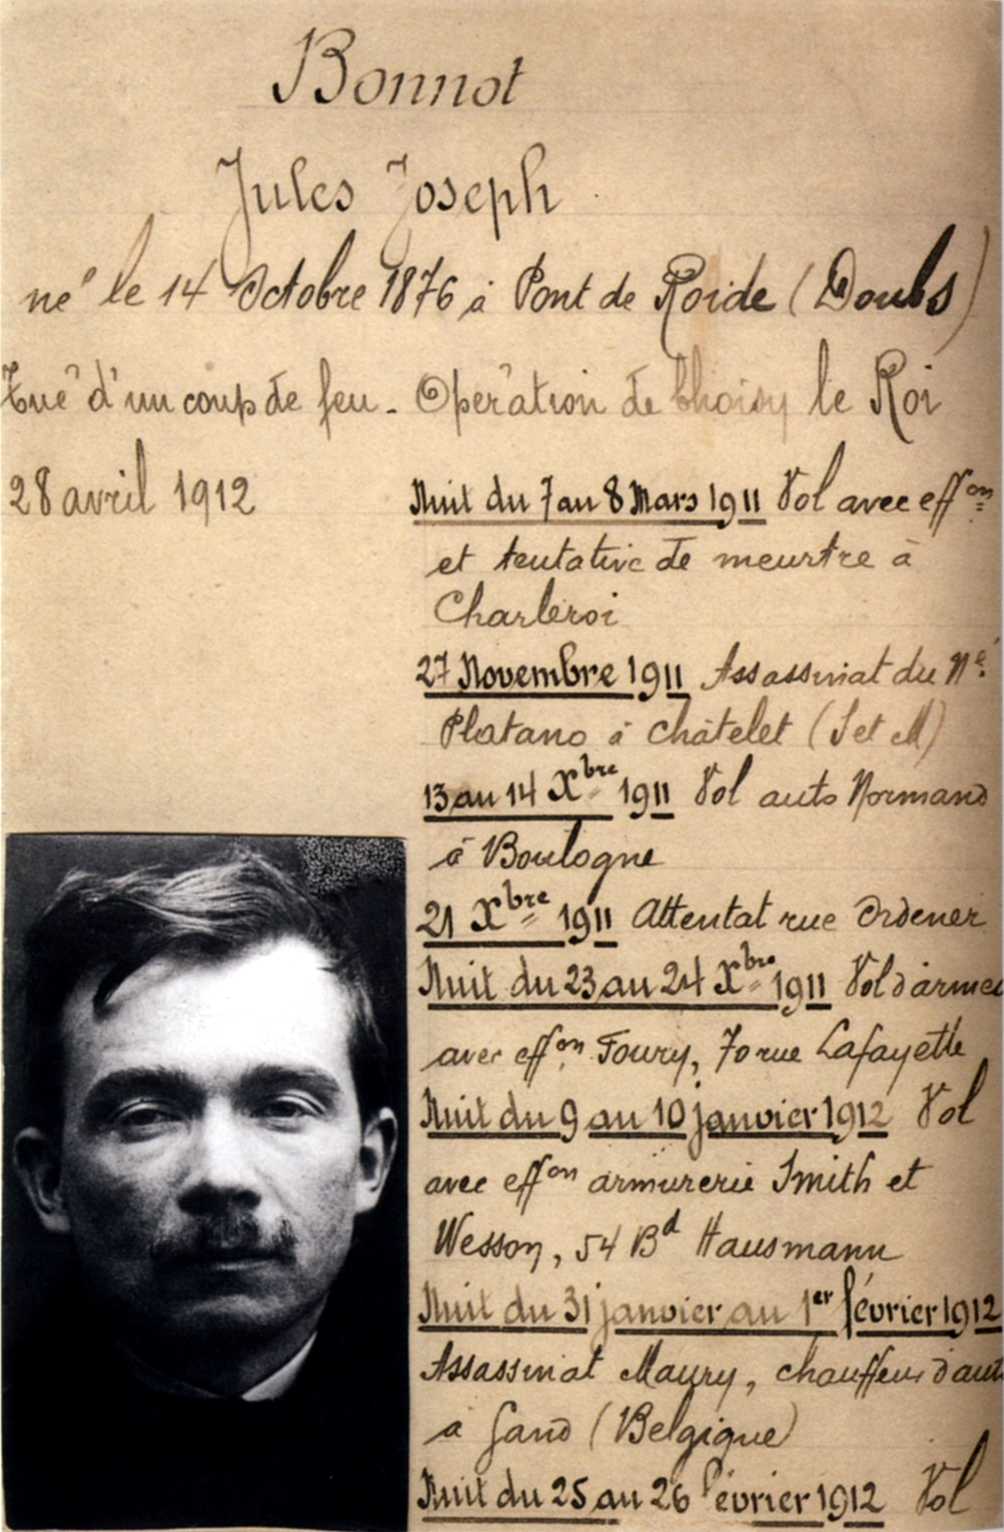 Bonnot
Jules Joseph
né le 14 Octobre 1876 à Pont de Roide (Doubs)
Tué d'un coup de feu - Opération de Choisy le Roi
28 avril 1912
Nuit du 7 au 8 Mars 1911 Vol avec effon
et tentative de meurtre à
Charleroi
27 Novembre 1911 Assassinat du Né
Platano à Châtelet (S et M)
13 au 14 Xbre 1911 Vol auto Normand
à Boulogne
21 Xbre 1911 Attentat rue Ordener
Nuit du 23 au 24 Xbre 1911 Vol d'armes
avec effon Foury, 70 rue Lafayette
Nuit du 9 au 10 janvier 1912 Vol
avec effon armurerie Smith et
Wesson, 54 Bd Hausmann
Nuit du 31 janvier au 1er février 1912
Assassinat Maury, chauffeur d'aut
à Gand (Belgique)
Nuit du 25 au 26 février 1912 Vol